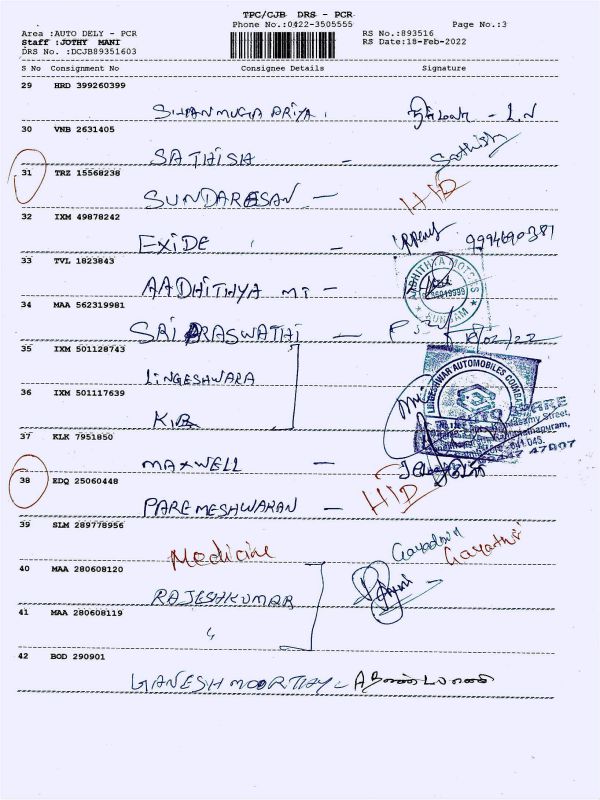 TPC/CJB DRS - PCR
Phone No.:0422-3505555
Page No.:3
Area :AUTO DELY - PCR
RS No.:893516
Staff :JOTHY MANI
RS Date:18-Feb-2022
DRS No. :DCJB89351603
S No Consignment No Consignee Details Signature
29 HRD 399260399
SHANMUGA PRIYA. - L.N
30 VNB 2631405
SATHISH - Sathish
31 TRZ 15568238
SUNDARESAN - HID
32 IXM 49878242
EXIDE - 9994690387
33 TVL 1823843
AADHITHYA MT -
AADHITHYA MOTORS
34 MAA 562319981
SRI SARASWATHI - 18/02/22
35 IXM 501128743
LINGESHWARA
LINGESHWAR AUTOMOBILES COIMBATORE
36 IXM 501117639
K.B
37 KLK 7951850
MAXWELL -
38 EDQ 25060448
PAREMESHWARAN - HID
39 SLM 289778956
Medicine Gayathri
40 MAA 280608120
RAJESHKUMAR
41 MAA 280608119
"
42 BOD 290901
GANESH MOORTHY -